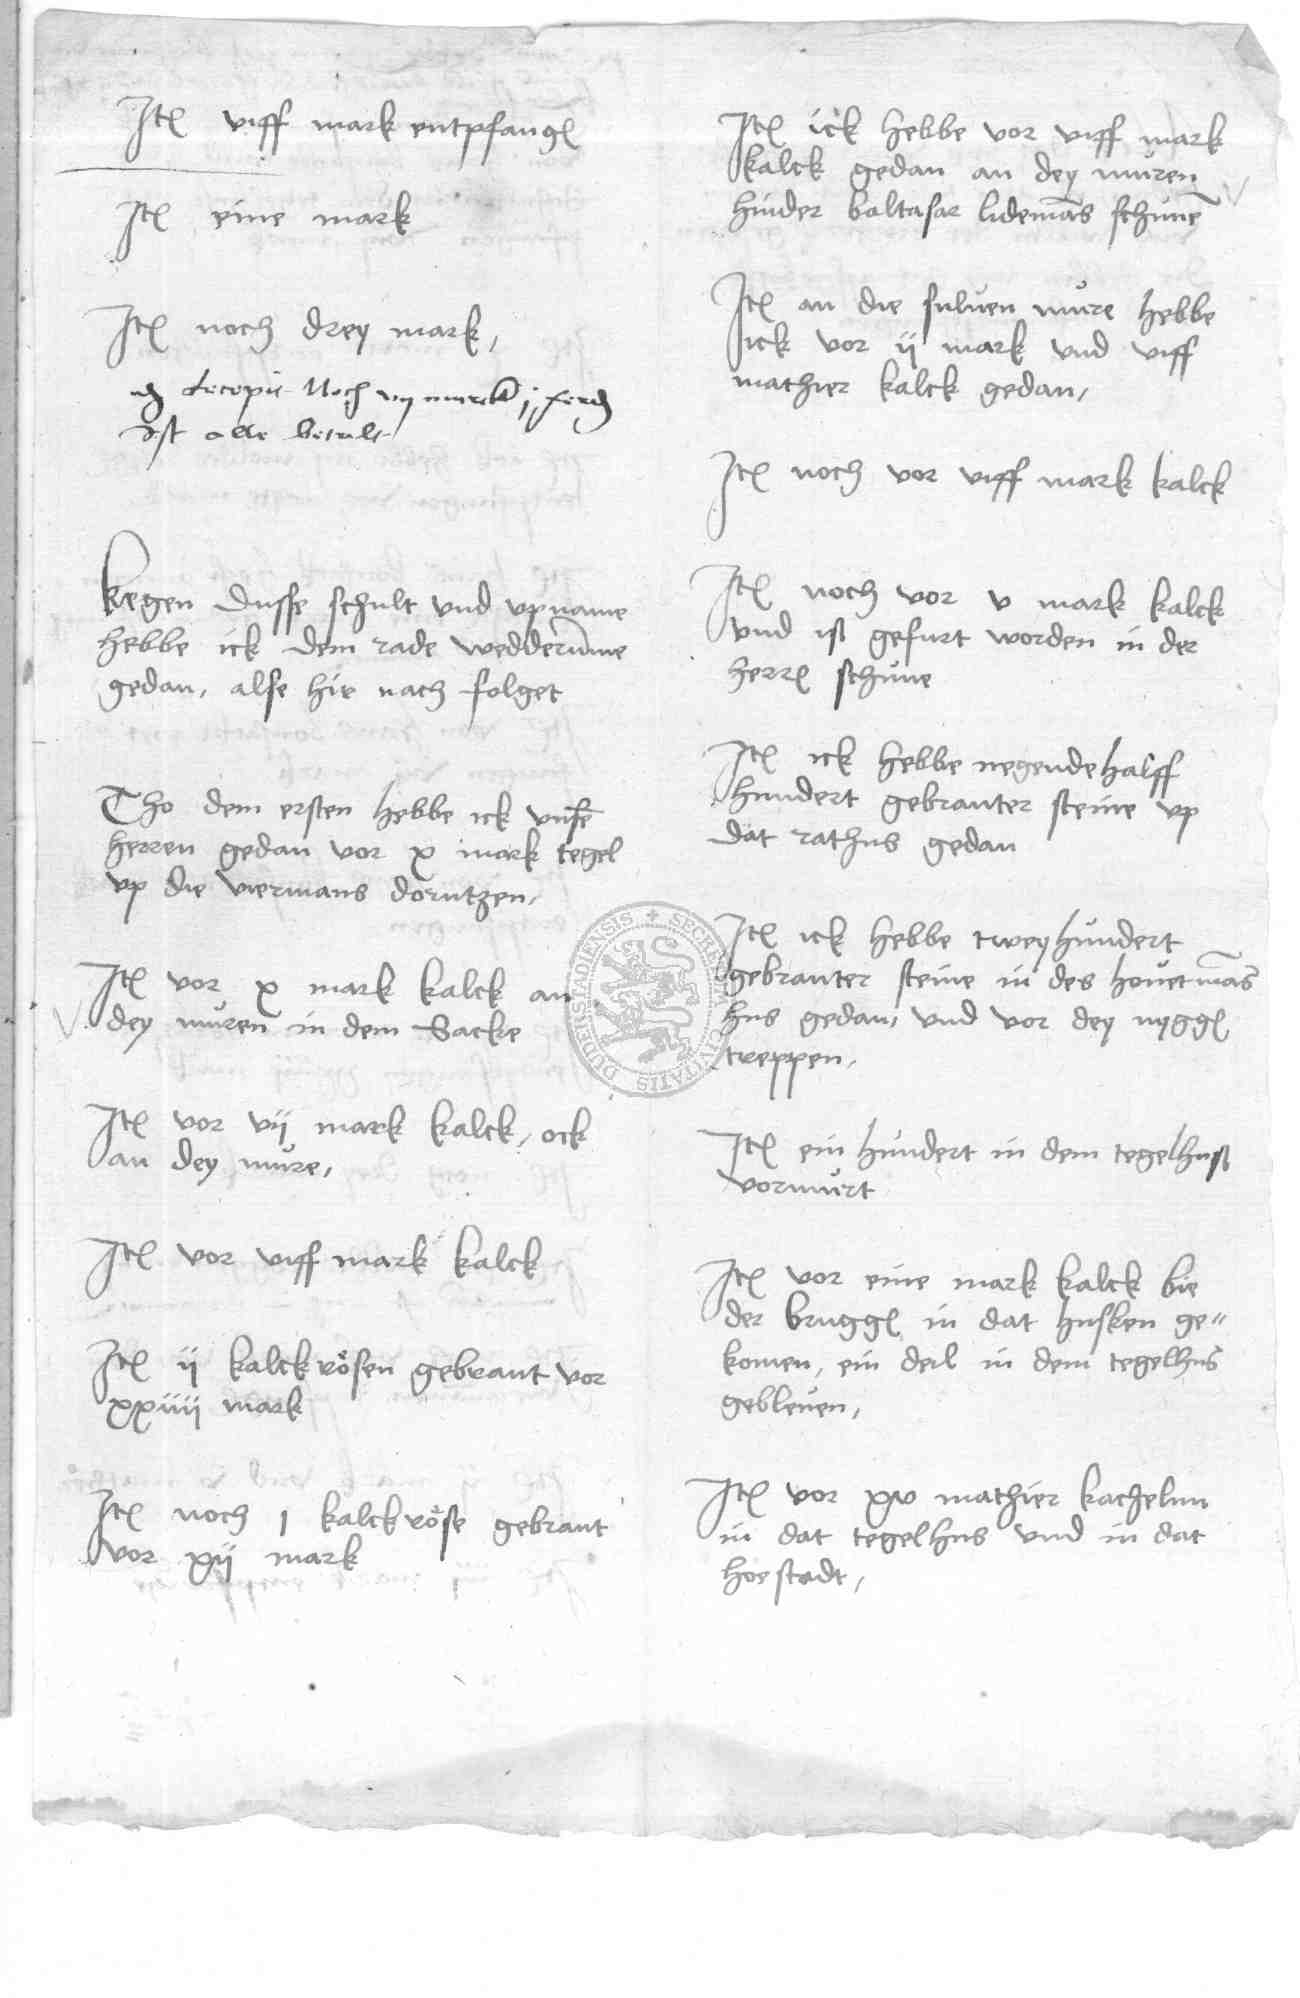 Itē viff mark entpfangē
Itē eine mark
Itē noch drey mark,
Recepit Noch vij marck j ferdẜ
Ist alle betalt
Kegen dusse schult vnd vpname
hebbe ick dem rade wedderūme
gedan, alse hir nach folget
Tho dem ersten hebbe ick vnsē
herren gedan vor x mark tegel
vp die viermans dorntzen,
Itē vor x mark kalck an
dey muren in dem Sacke
Itē vor vij mark kalck, ock
an dey mure,
Itē vor viff mark kalck
Itē ij kalckrosen gebrant vor
xxiiij mark
Itē noch j kalckrose gebrant
vor xij mark
Itē ick hebbe vor viff mark
kalck gedan an dey muren
hinder baltasar lidemās schunē
Itē an die suluen mure hebbe
ick vor ij mark vnd viff
mathier kalck gedan,
Itē noch vor viff mark kalck
Itē noch vor v mark kalck
vnd ist gefurt worden in der
herrē schune
Itē ick hebbe negendehalff
hundert gebranter steine vp
dat rathus gedan
Itē ick hebbe tweyhundert
gebranter steine in des houetmās
hus gedan, vnd vor dey nyggē
treppen,
Itē ein hundert in dem tegelhuß
vormurt
Itē vor eine mark kalck bie
der bruggē in dat husken ge-
komen, ein deil in dem tegelhus
gebleuen,
Itē vor xv mathier kachelnn
in dat tegelhus vnd in dat
hoestadt,
SECRETVM CIVITATIS DUDERSTADIENSIS